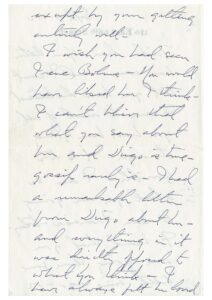 except by your getting
entirely well.
I wish you had seen
Irene Bohus – You would
have liked her I think –
I can't believe that
what you say about
her and Diego is true –
gossip surely is – I had
a remarkable letter
from Diego about her –
and everything in it
was directly opposed to
what you think – I
have always felt he loved